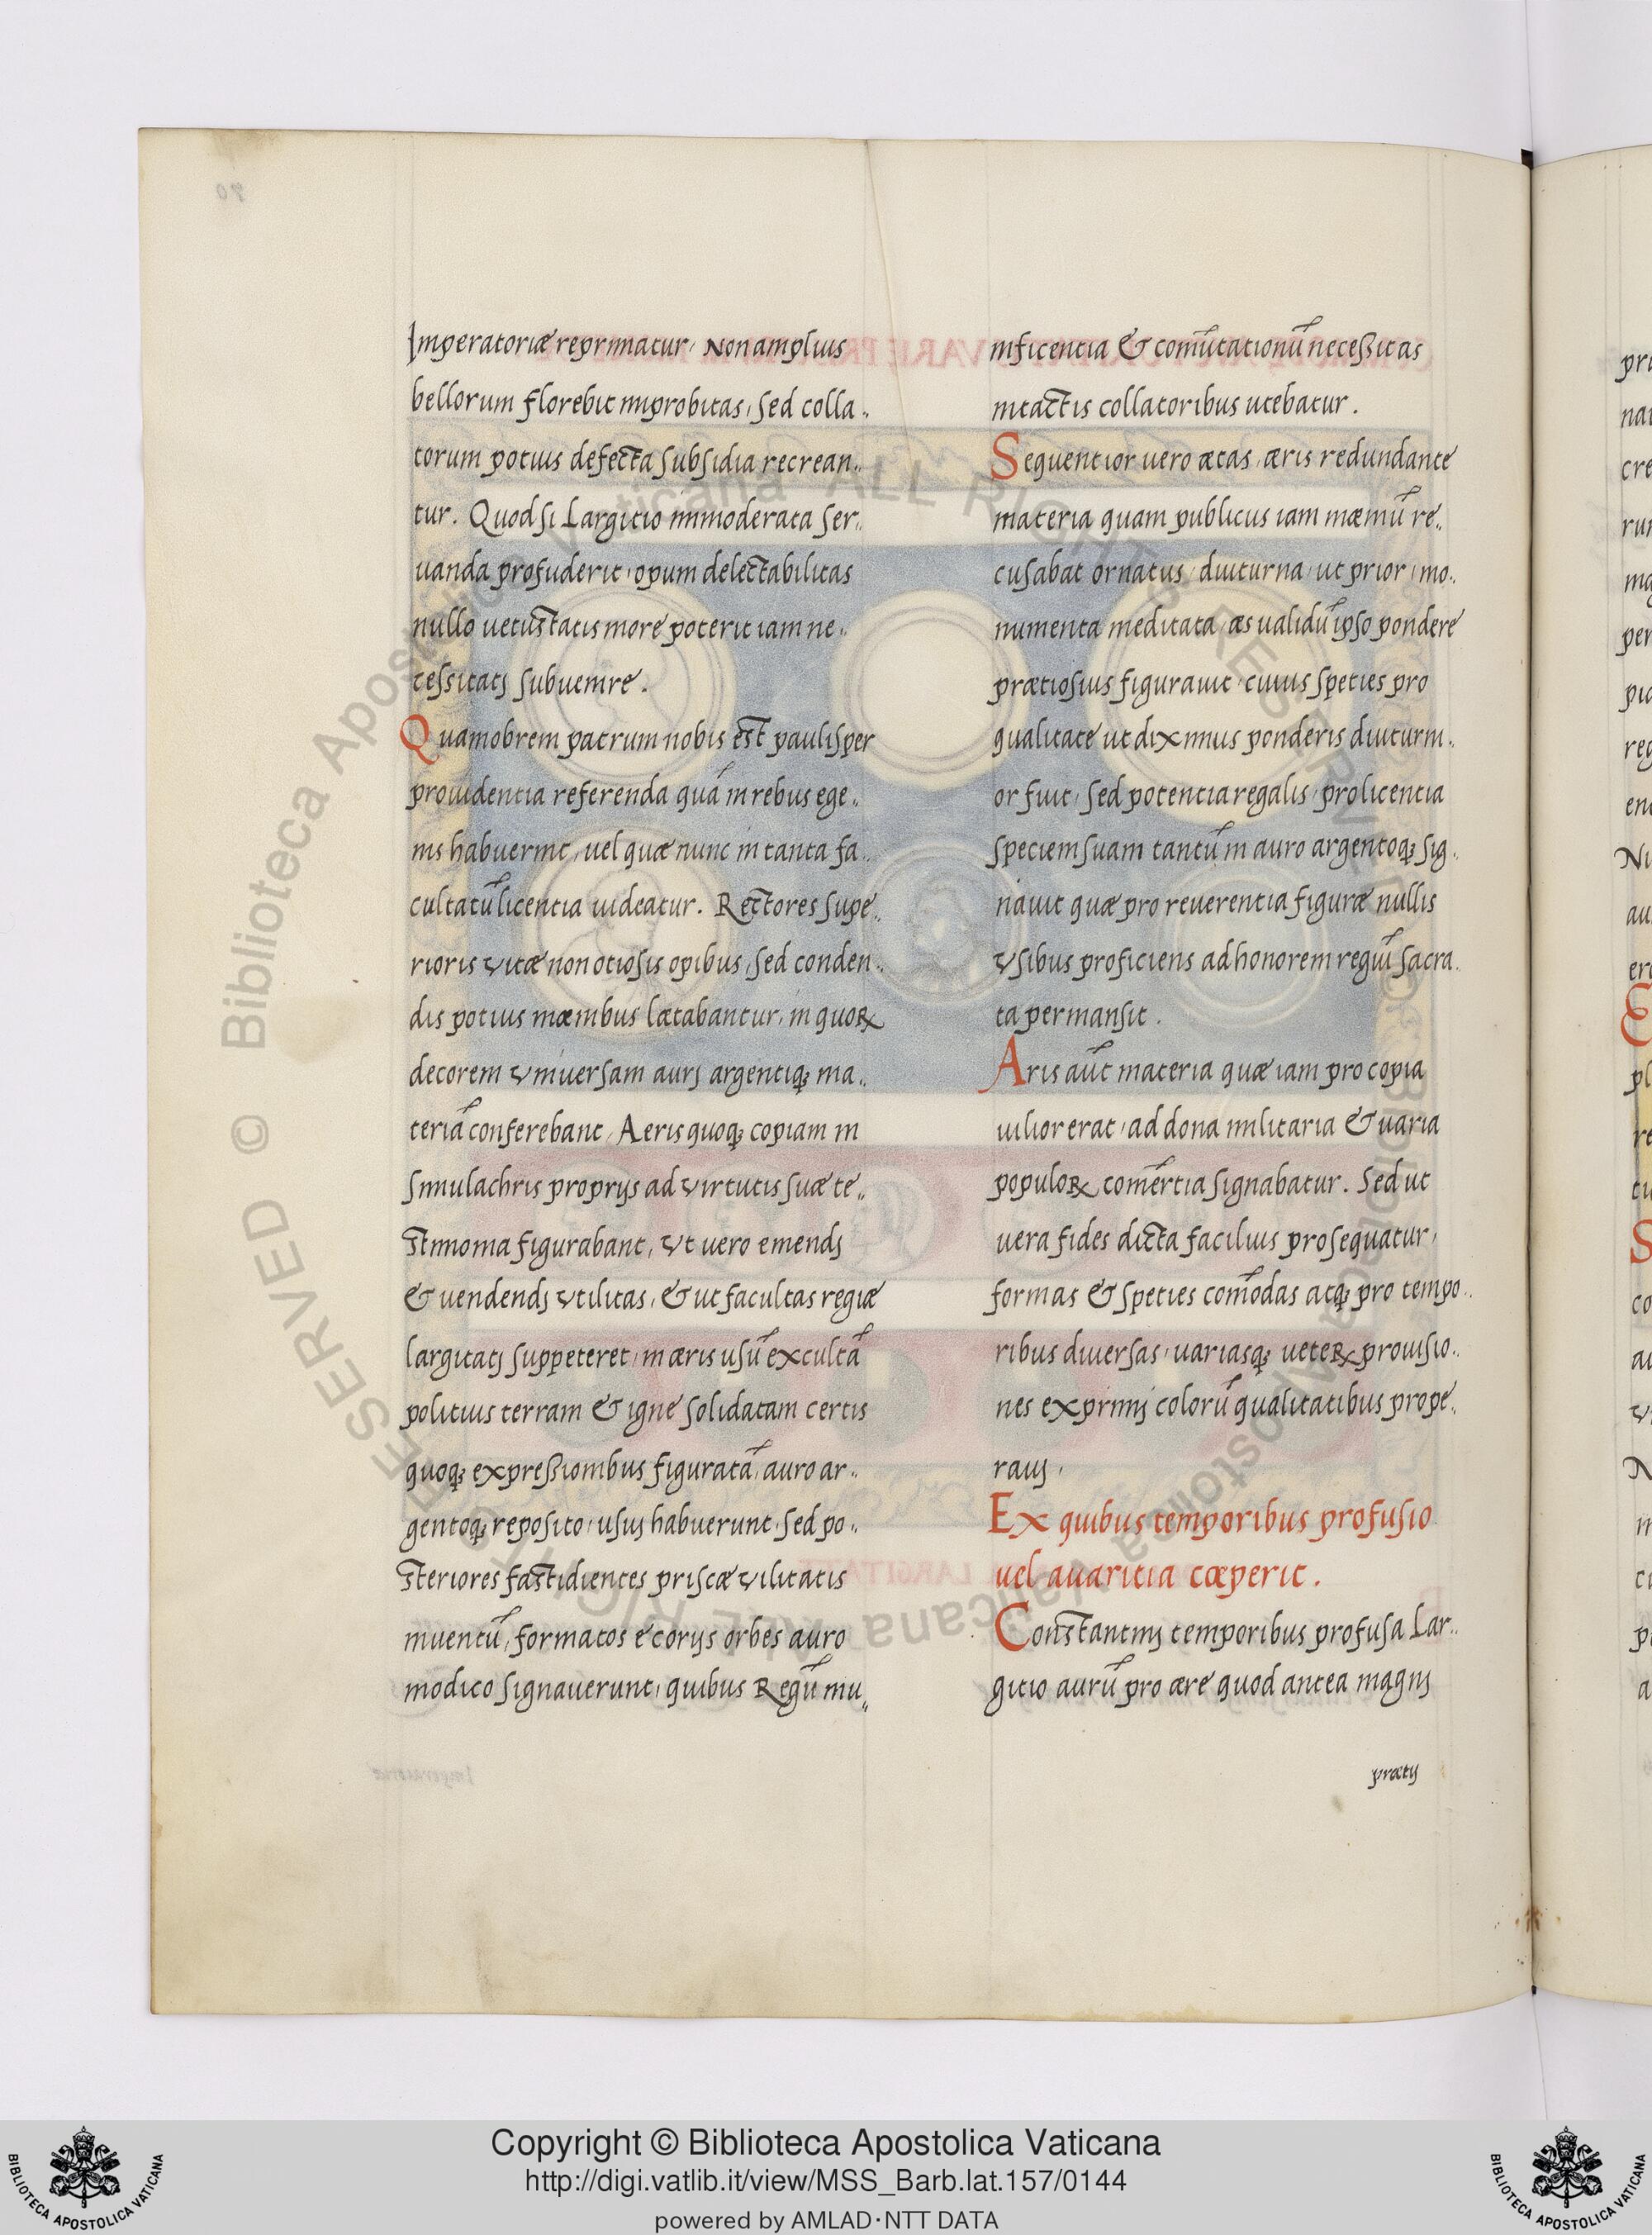 Imperatoriæ reprimatur, Non amplius
bellorum florebit improbitas, sed colla..
torum potius defecta subsidia recrean..
tur. Quod si Largitio immoderata ser..
uanda profuderit, opum delectabilitas
nullo uetustatis more poterit iam ne..
cessitatj subuenire.
Quamobrem patrum nobis est paulisper
prouidentia referenda quā in rebus ege..
nis habuerint, uel quæ nunc in tanta fa..
cultatū licentia uideatur. Rectores supe..
rioris vitæ non otiosis opibus, sed conden..
dis potius mœnibus lætabantur, in quoꝝ
decorem vniuersam aurj argentiq; ma..
teriā conferebant, Aeris quoq; copiam in
simulachris proprijs ad virtutis suæ te..
stimonia figurabant, vt uero emendj
& uendendj vtilitas, & ut facultas regiæ
largitatj suppeteret, in æris usū excultā
politius terram & igne solidatam certis
quoq; expressionibus figuratā, auro ar..
gentoq; reposito, usuj habuerunt, sed po..
steriores fastidientes priscæ vilitatis
inuentū, formatos e corijs orbes auro
modico signauerunt, quibus Regū mu..
nificentia & com̄utationū necessitas
intactis collatoribus utebatur.
Sequentior uero ætas, æris redundante
materia quam publicus iam mœniū re..
cusabat ornatus, diuturna, ut prior, mo..
numenta meditata, æs ualidū ipso pondere
prætiosius figurauit, cuius speties pro
qualitate ut diximus ponderis diuturni..
or fuit, sed potentia regalis, pro licentia
speciem suam tantū in auro argentoq; sig..
nauit quæ pro reuerentia figuræ nullis
vsibus proficiens ad honorem regū sacra..
ta permansit.
Aris aūt materia quæ iam pro copia
uilior erat, ad dona militaria & uaria
populoꝝ com̄ertia signabatur. Sed ut
uera fides dicta facilius prosequatur,
formas & speties com̄odas atq; pro tempo..
ribus diuersas, uariasq; ueteꝝ prouisio..
nes exprimj colorū qualitatibus prope..
rauj,
Ex quibus temporibus profusio
uel auaritia cœperit.
Constantinj temporibus profusa Lar..
gitio aurū pro ære quod antea magnj
prætij
Copyright © Biblioteca Apostolica Vaticana
http://digi.vatlib.it/view/MSS_Barb.lat.157/0144
powered by AMLAD·NTT DATA